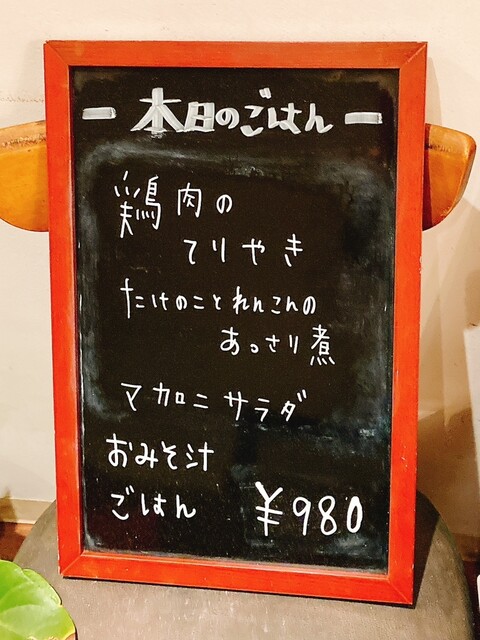 －本日のごはん－
鶏肉の
てりやき
たけのことれんこんの
あっさり煮
マカロニサラダ
おみそ汁
ごはん ¥980